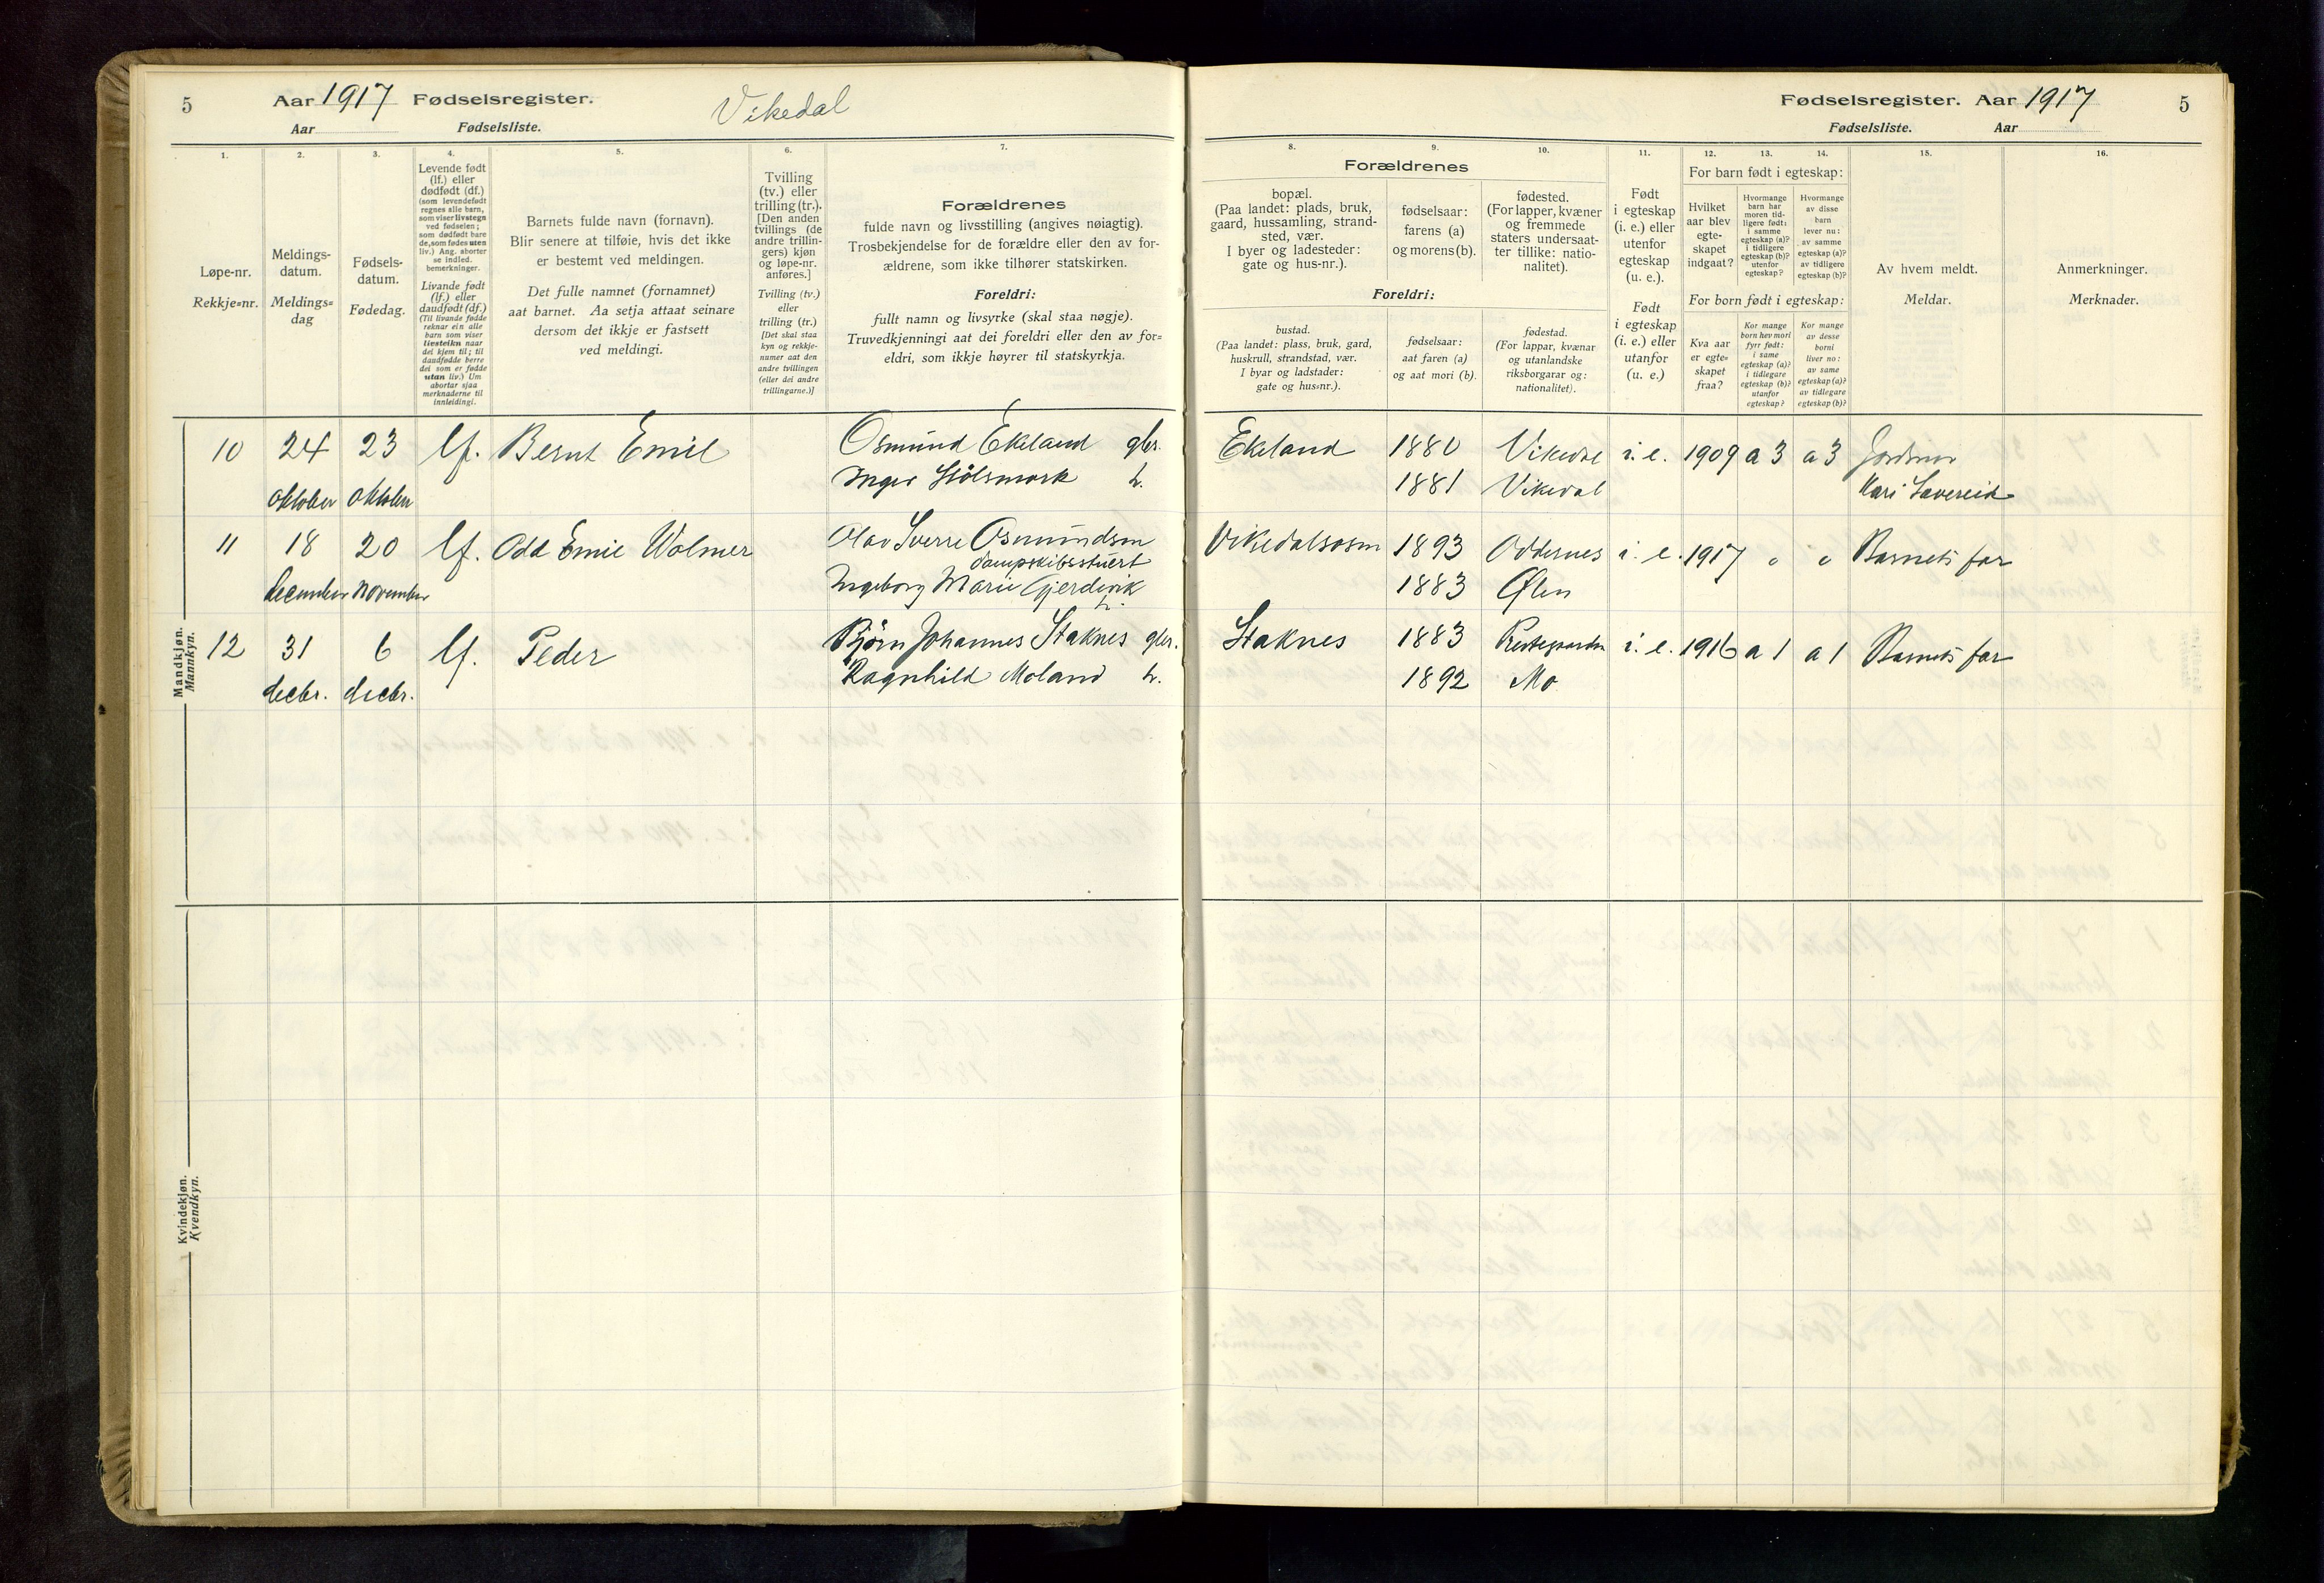 5
Aar 1917 Fødselsregister.
Vikedal
Aar
Fødselsliste.
Fødselsregister. Aar 1917
5
Fødselsliste.
Aar
1.
2.
3.
4.
5.
6.
7.
8.
9.
10.
11.
12.
13.
14.
15.
16.
Løpe-nr.
Rekkje-nr.
Meldings-
datum.
Meldings-
dag
Fødsels-
datum.
Fødedag.
Levende født
(lf.) eller
dødfødt (df.)
(som levendefødt
regnes alle barn,
som viser livstegn
ved fødselen;
som dødfødt bare
de, som fødes uten
liv.) Ang. aborter
se indled.
bemerkninger.
Livande født
(lf.) eller
daudfødt (df.)
(Til livande fødde
reknar ein alle
barn som viser
livsteikn naar
dei kjem til; til
daudfødde berre
dei som er fødde
utan liv.) Um
abortar sjaa
merknaderne til
innleidingi.
Barnets fulde navn (fornavn).
Blir senere at tilføie, hvis det ikke
er bestemt ved meldingen.
Det fulle namnet (fornamnet)
aat barnet. Aa setja attaat seinare
dersom det ikkje er fastsett
ved meldingi.
Tvilling
(tv.) eller
trilling (tr.).
[Den anden
tvillings (de
andre trillin-
gers) kjøn
og løpe-nr.
anføres.]
Tvilling (tv.)
eller
trilling (tr.)
[Det skal staa
kyn og rekkje-
numer aat den
andre tvillingen
(eller dei andre
trillingarne.)]
Forældrenes
fulde navn og livsstilling (angives nøiagtig).
Trosbekjendelse for de forældre eller den av for-
ældrene, som ikke tilhører statskirken.
Foreldri:
fullt namn og livsyrke (skal staa nøgje).
Truvedkjenningi aat dei foreldri eller den av for-
eldri, som ikkje høyrer til statskyrkja.
Forældrenes
bopæl.
(Paa landet: plads, bruk,
gaard, hussamling, strand-
sted, vær.
I byer og ladesteder:
gate og hus-nr.).
fødselsaar:
farens (a)
og morens (b).
fødested.
(For lapper, kvæner
og fremmede
staters undersaat-
ter tillike: natio-
nalitet).
Foreldri:
bustad.
(Paa landet: plass, bruk, gard,
huskrull, strandstad, vær.
I byar og ladstader:
gate og hus-nr.).
fødselsaar:
aat faren (a)
og aat mori (b).
fødestad.
(For lappar, kvænar
og utanlandske
riksborgarar og:
nationalitet).
Født
i egteskap
(i. e.) eller
utenfor
egteskap
(u. e.).
Født
i egteskap
(i. e.) eller
utanfor
(u. e.)
For barn født i egteskap:
Hvilket
aar blev
egte-
skapet
indgaat?
Hvormange
barn har
moren tid-
ligere født:
i samme
egteskap (a)?
i tidligere
egteskap (b)?
utenfor
egteskap?
Hvormange
av disse
barn
lever nu:
av samme
egteskap (a)?
av tidligere
egteskap (b)?
For born født i egteskap:
Kva aar
er egte-
skapet
fraa?
Kor mange
born hev mori
fyrr født:
i same
egteskap (a)?
i tidlegare
egteskap (b)?
utanfor
egteskap?
Kor mange
av desse
borni
liver no:
av same
egteskap (a)?
av tidlegare
egteskap (b)?
Av hvem meldt.
Meldar.
Anmerkninger.
Merknader.
Mandkjøn.
Mannkyn.
10 24 23 lf. Bernt Emil Osmund Ekeland gbr. Ekeland 1880 Vikedal i. e. 1909 a 3 a 3 Jordmor
oktober oktober Inger Stölsmark h. 1881 Vikedal Kari
11 18 20 lf. Odd Emil Wolmer Olav Sverre Osmundsen Vikedalsosen 1893 Oddernes i. e. 1917 " " Barnets far
dampskibsstuert
december november Ingeborg Marie Gjerdevik h. 1883 Ølen
12 31 6 lf. Peder Bjørn Johannes Staknes gbr. Staknes 1883 i. e. 1916 a 1 a 1 Barnets far
decbr. decbr. Ragnhild Moland h. 1892 Mo
Kvindekjøn.
Kvendkyn.